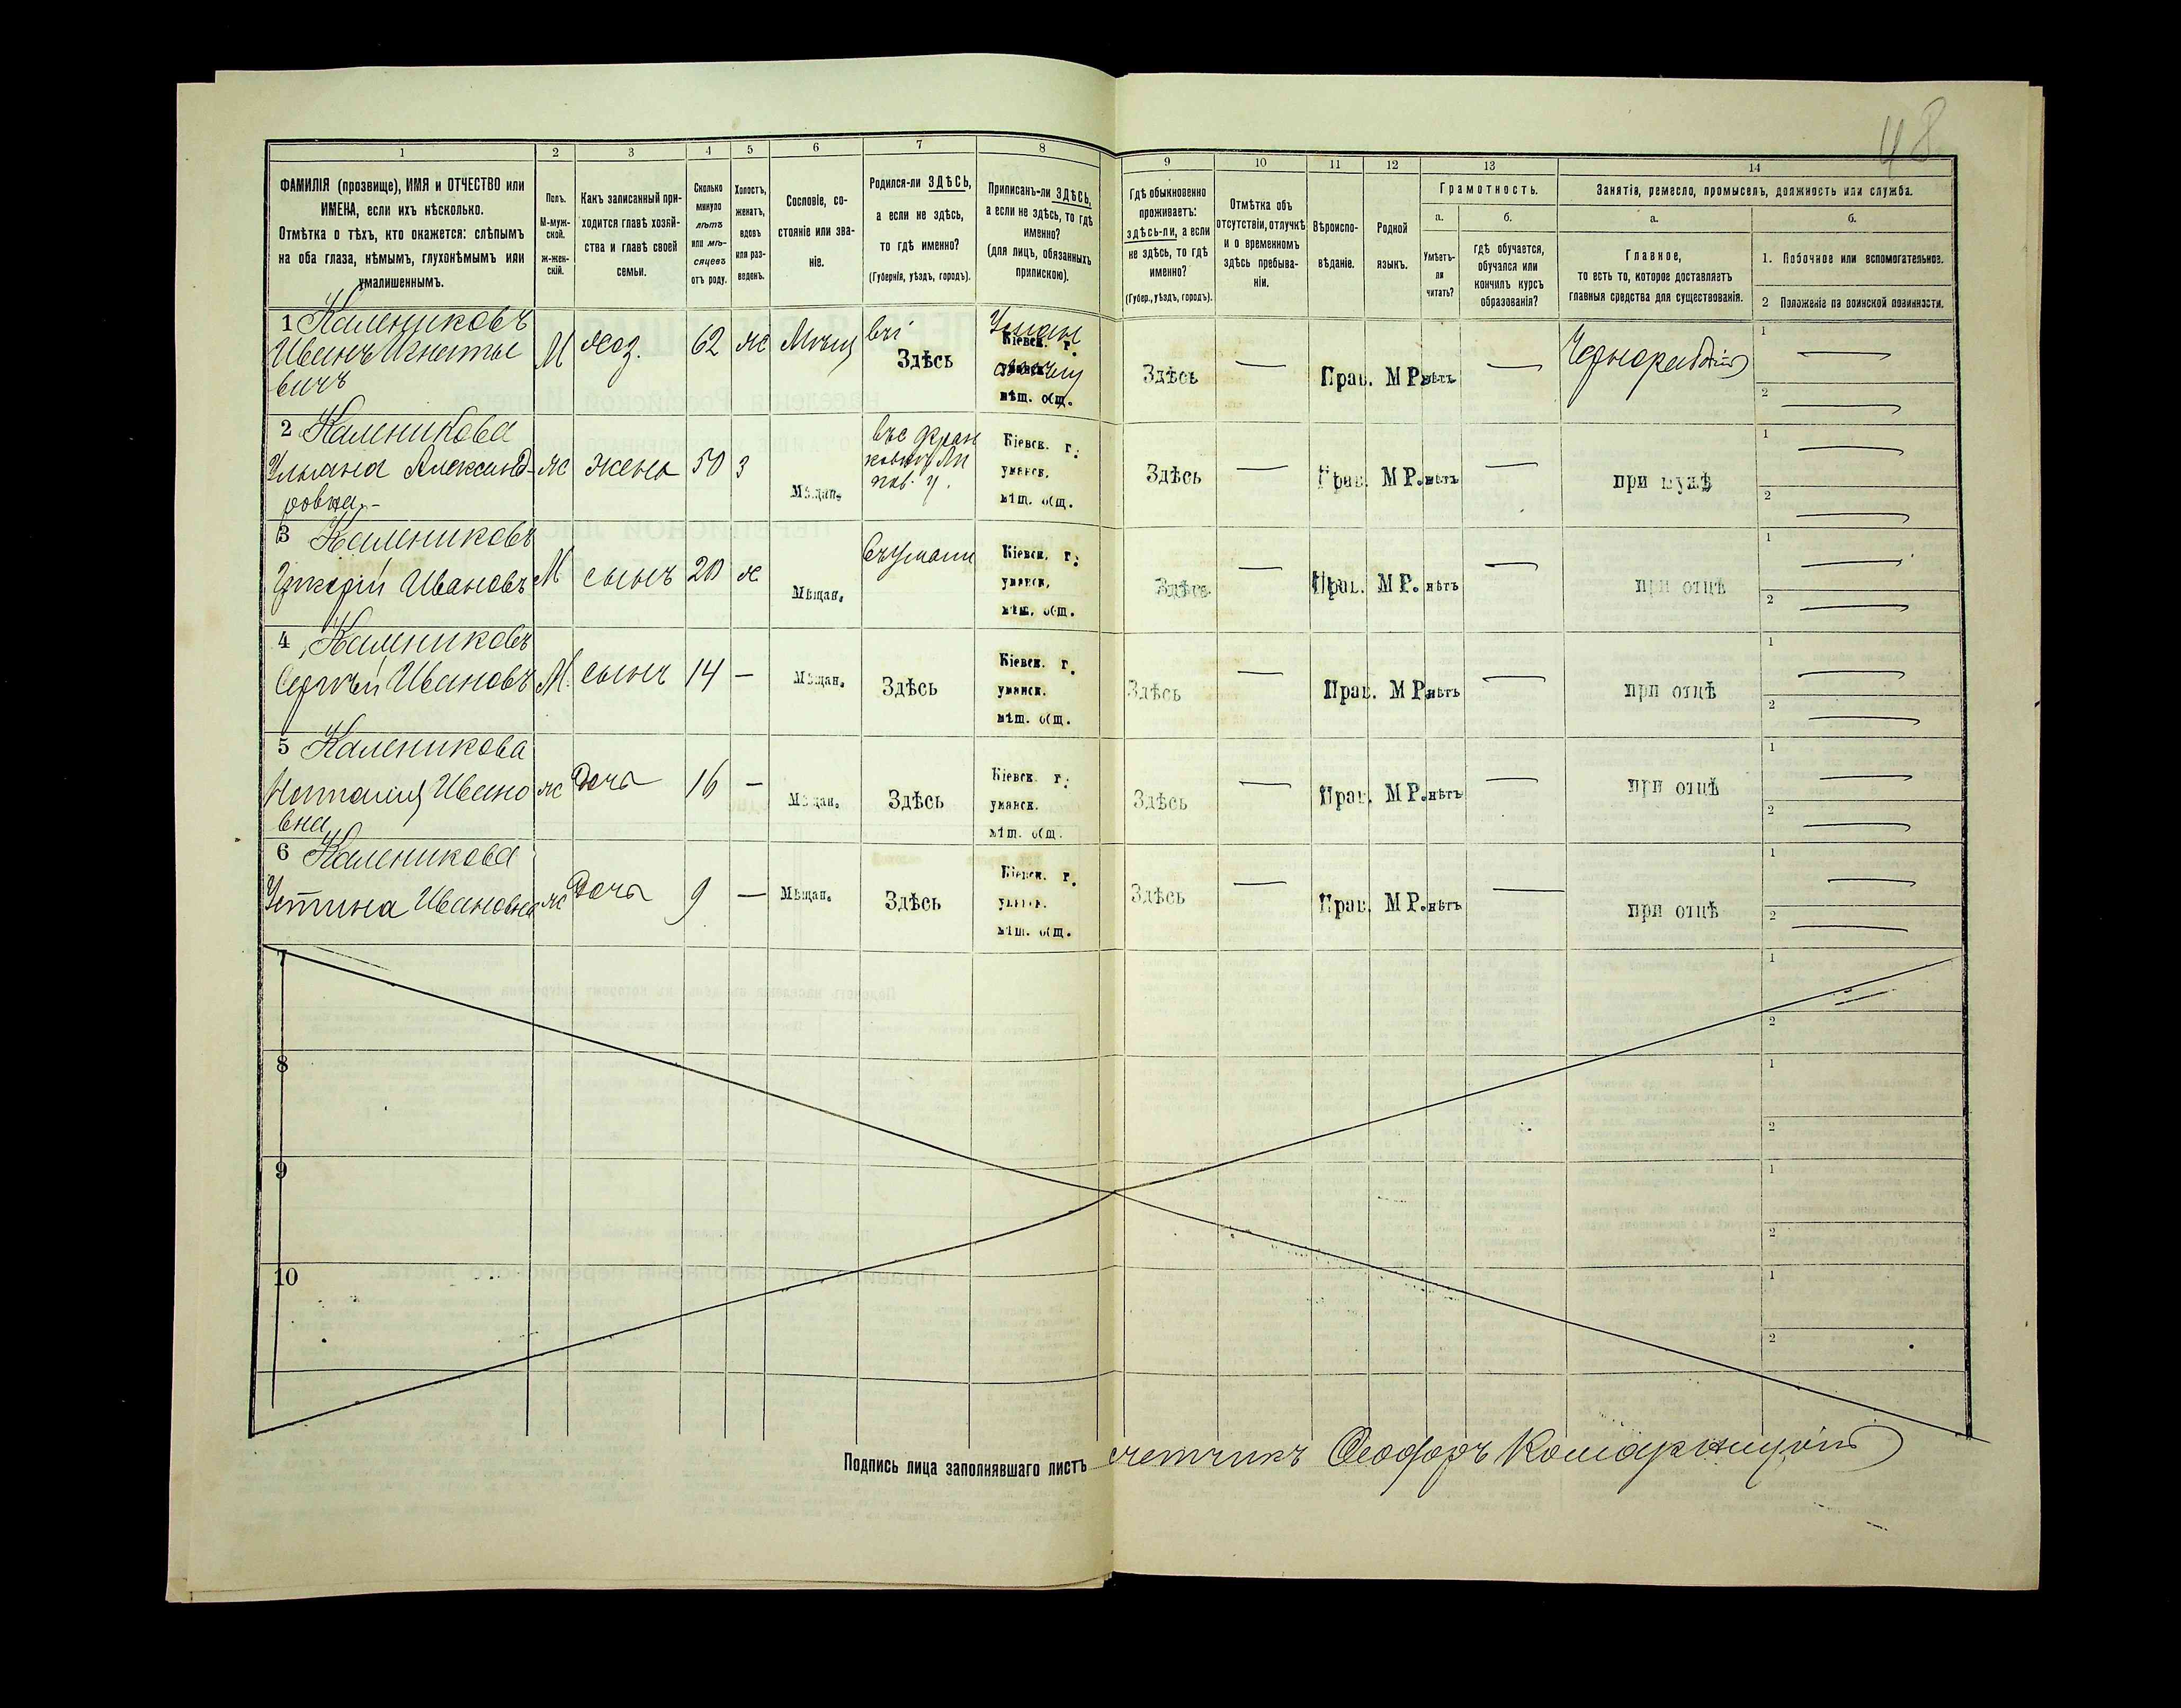 48
1
2
3
4
5
6
7
8
9
10
11
12
13
14
ФАМИЛІЯ (прозвище), ИМЯ и ОТЧЕСТВО или
ИМЕНА, если ихъ нѣсколько.
Отмѣтка о тѣхъ, кто окажется: слѣпымъ
на оба глаза, нѣмымъ, глухонѣмымъ или
умалишеннымъ.
Полъ.
М-муж-
ской.
Ж-жен-
скій.
Какъ записанный при-
ходится главѣ хозяй-
ства и главѣ своей
семьи.
Сколько
минуло
лѣтъ
или мѣ-
сяцевъ
отъ роду.
Холостъ,
женатъ,
вдовъ
или раз-
веденъ.
Сословіе, со-
стояніе или зва-
ніе.
Родился-ли ЗДѢСЬ,
а если не здѣсь,
то гдѣ именно?
(Губернія, уѣздъ, городъ).
Приписанъ-ли ЗДѢСЬ,
а если не здѣсь, то гдѣ
именно?
(для лицъ, обязанныхъ
припискою).
Гдѣ обыкновенно
проживаетъ:
здѣсь-ли, а если
не здѣсь, то гдѣ
именно?
(Губер., уѣздъ, городъ).
Отмѣтка объ
отсутствіи, отлучкѣ
и о временномъ
здѣсь пребыва-
ніи.
Вѣроиспо-
вѣданіе.
Родной
языкъ.
Грамотность.
а.
Умѣетъ-
ли
читать?
б.
гдѣ обучается,
обучался или
кончилъ курсъ
образованія?
Занятія, ремесло, промыселъ, должность или служба.
а.
Главное,
то есть то, которое доставляетъ
главныя средства для существованія.
б.
1. Побочное или вспомогательное.
2 Положеніе по воинской повинности.
1 Калениковъ
Иванъ Игнатье
вичъ
М
хоз.
62
ж
Мѣщ
Здѣсь
Кіевск. г.
мѣщ. общ.
Здѣсь
—
Прав.
М Р.
нѣтъ
—
Чернорабочій
1 —
2 —
2 Каленикова
Ульяна Александ-
ровна
ж
жена
50
з
Мѣщан.
Кіевск. г.
уманск.
мѣщ. общ.
Здѣсь
—
Прав.
М Р.
нѣтъ
—
при мужѣ
1 —
2 —
3 Калениковъ
Григорій Ивановъ
М
сынъ
20
х
Мѣщан.
Кіевск. г.
уманск.
мѣщ. общ.
Здѣсь
—
Прав.
М Р.
нѣтъ
—
при отцѣ
1 —
2 —
4 Калениковъ
Сергѣй Ивановъ
М.
сынъ
14
—
Мѣщан.
Здѣсь
Кіевск. г.
уманск.
мѣщ. общ.
Здѣсь
—
Прав.
М Р.
нѣтъ
—
при отцѣ
1 —
2 —
5 Каленикова
Наталія Ивано
вна
ж
дочь
16
—
Мѣщан.
Здѣсь
Кіевск. г.
уманск.
мѣщ. общ.
Здѣсь
—
Прав.
М Р.
нѣтъ
—
при отцѣ
1 —
2 —
6 Каленикова
Устина Ивановна
ж
дочь
9
—
Мѣщан.
Здѣсь
Кіевск. г.
уманск.
мѣщ. общ.
Здѣсь
—
Прав.
М Р.
нѣтъ
—
при отцѣ
1 —
2 —
7
1
2
8
1
2
9
1
2
10
1
2
Подпись лица заполнявшаго листъ счетчикъ Ѳеодоръ Комарницкій